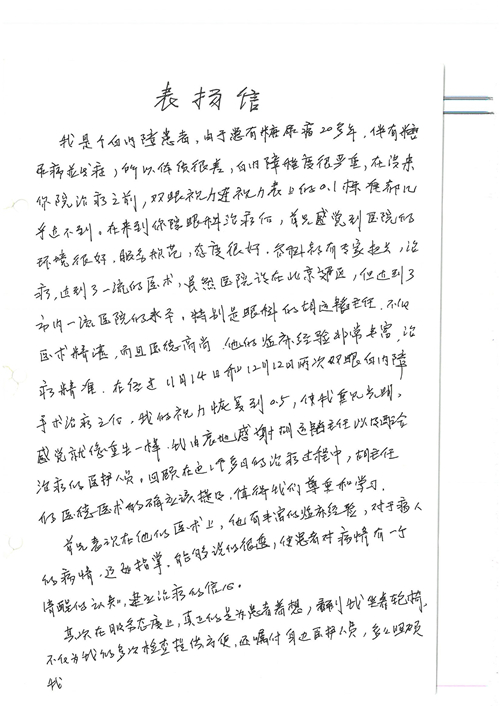 表扬信
我是个白内障患者，由于患有糖尿病20多年，伴有糖
尿病并发症，所以体质很差，白内障程度很严重，在没来
你院治疗之前，双眼视力连视力表上的0.1标准都几
乎达不到。在来到你院眼科治疗后，首先感觉到医院的
环境很好，服务规范，态度很好，各科都有专家坐诊，治
疗达到了一流的医术，虽然医院设在北京郊区，但达到了
市内一流医院的水平，特别是眼科的胡运韬主任，不仅
医术精湛，而且医德高尚，他的临床经验非常丰富，治
疗精准，在经过11月14日和12月12日两次双眼白内障
手术治疗之后，我的视力恢复到0.5，使我重见光明，
感觉就像重生一样，我由衷地感谢胡运韬主任以及配合
治疗的医护人员，回顾在这1个多月的治疗过程中，胡主任
的医德医术的确应该提倡，值得我们尊重和学习。
首先表现在他的医术上，他有丰富的临床经验，对于病人
的病情，了如指掌，能够说的很透，使患者对病情有一个
清醒的认知，建立治病的信心。
其次在服务态度上，真正的是为患者着想，看到我坐着轮椅，
不仅为我的多次检查提供方便，还嘱付身边医护人员，多么照顾
我